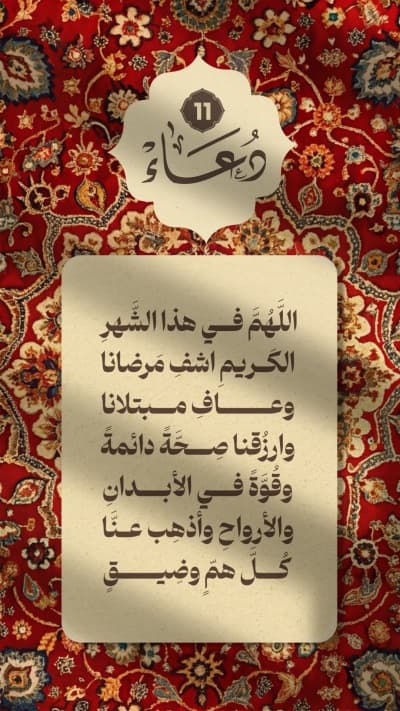 11
دُعَاءْ
اللَّهُمَّ في هذا الشَّهرِ
الكَريمِ اشفِ مَرضانا
وعافِ مبتلانا
وارزُقنا صِحَّةً دائمةً
وقُوَّةً في الأبدانِ
والأرواحِ وأذهِب عنَّا
كُلَّ همٍّ وضِيقٍ